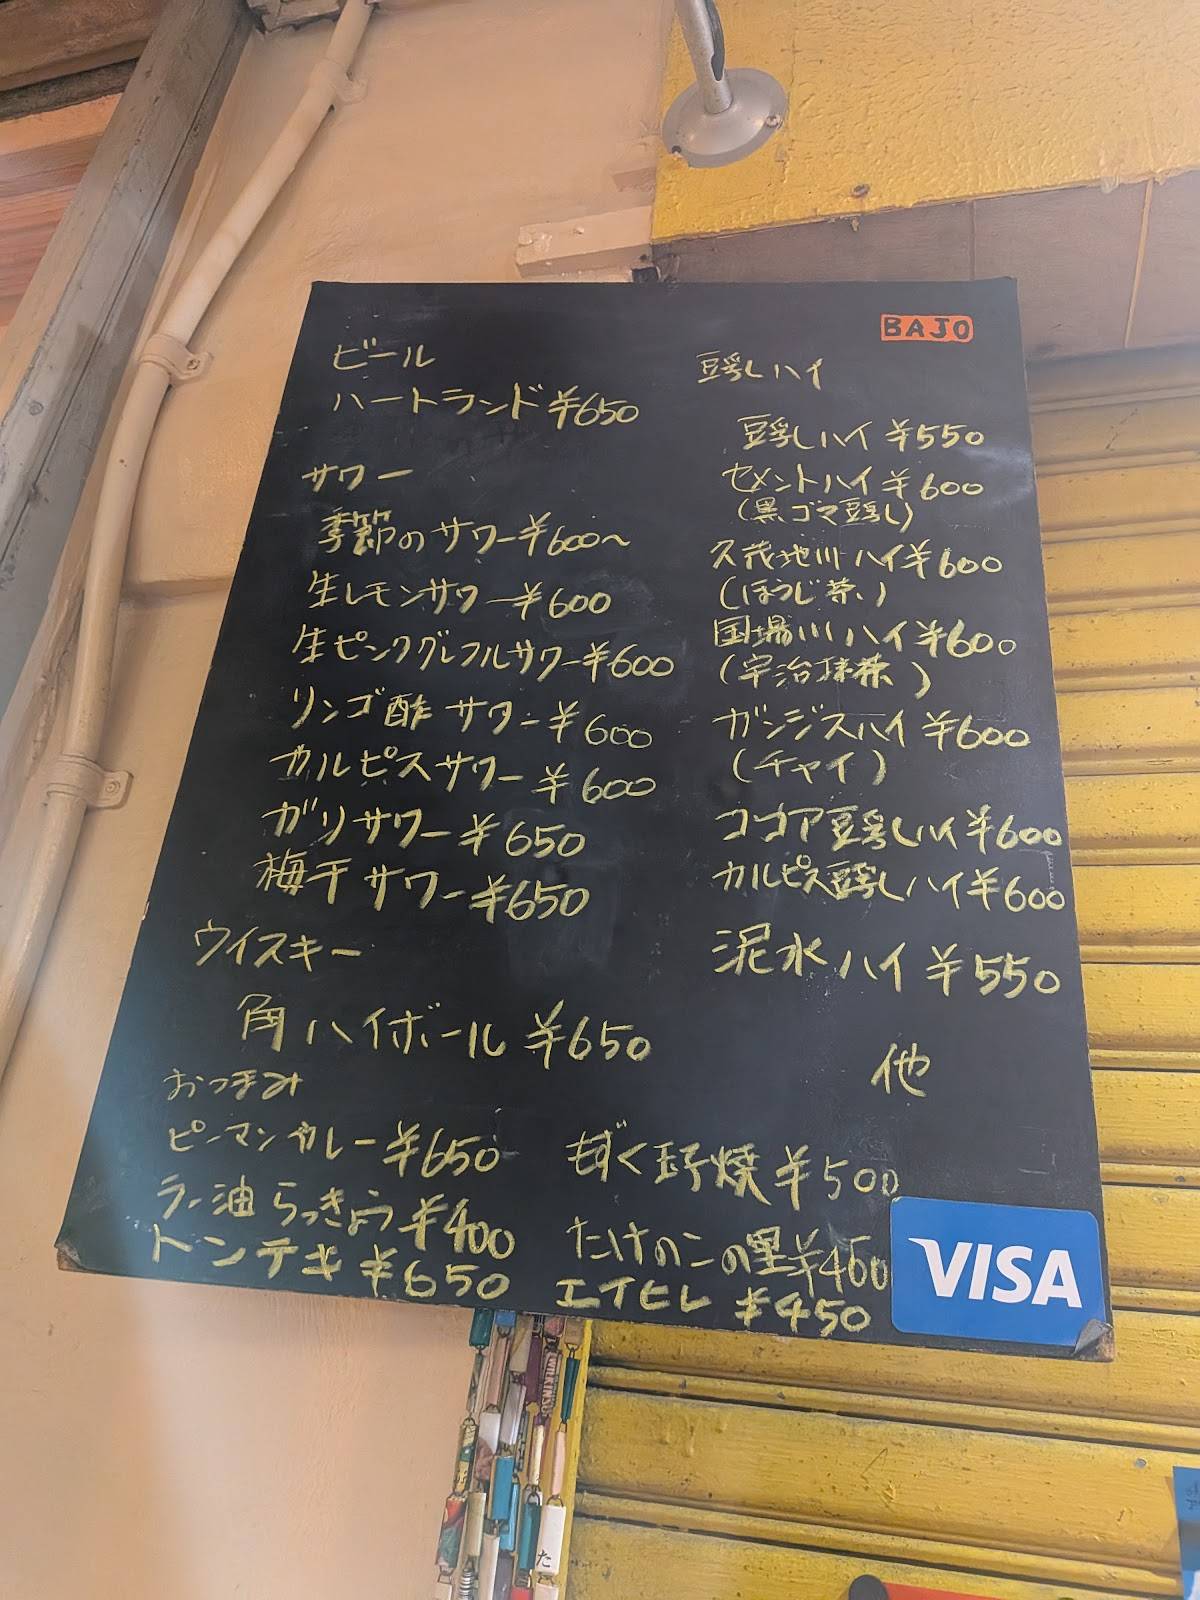 BAJO
ビール
ハートランド ¥650
サワー
季節のサワー ¥600〜
生レモンサワー ¥600
生ピンクグレフルサワー ¥600
リンゴ酢サワー ¥600
カルピスサワー ¥600
ガリサワー ¥650
梅干サワー ¥650
ウイスキー
角ハイボール ¥650
おつまみ
ピーマンカレー ¥650
ラー油らっきょう ¥400
トンテキ ¥650
豆乳ハイ
豆乳ハイ ¥550
セメントハイ ¥600
(黒ゴマ豆乳)
久茂地川ハイ ¥600
(ほうじ茶)
国場川ハイ ¥600
(宇治抹茶)
ガンジスハイ ¥600
(チャイ)
ココア豆乳ハイ ¥600
カルピス豆乳ハイ ¥600
泥水ハイ ¥550
他
もずく玉子焼 ¥500
たけのこの里 ¥450
エイヒレ ¥450
VISA